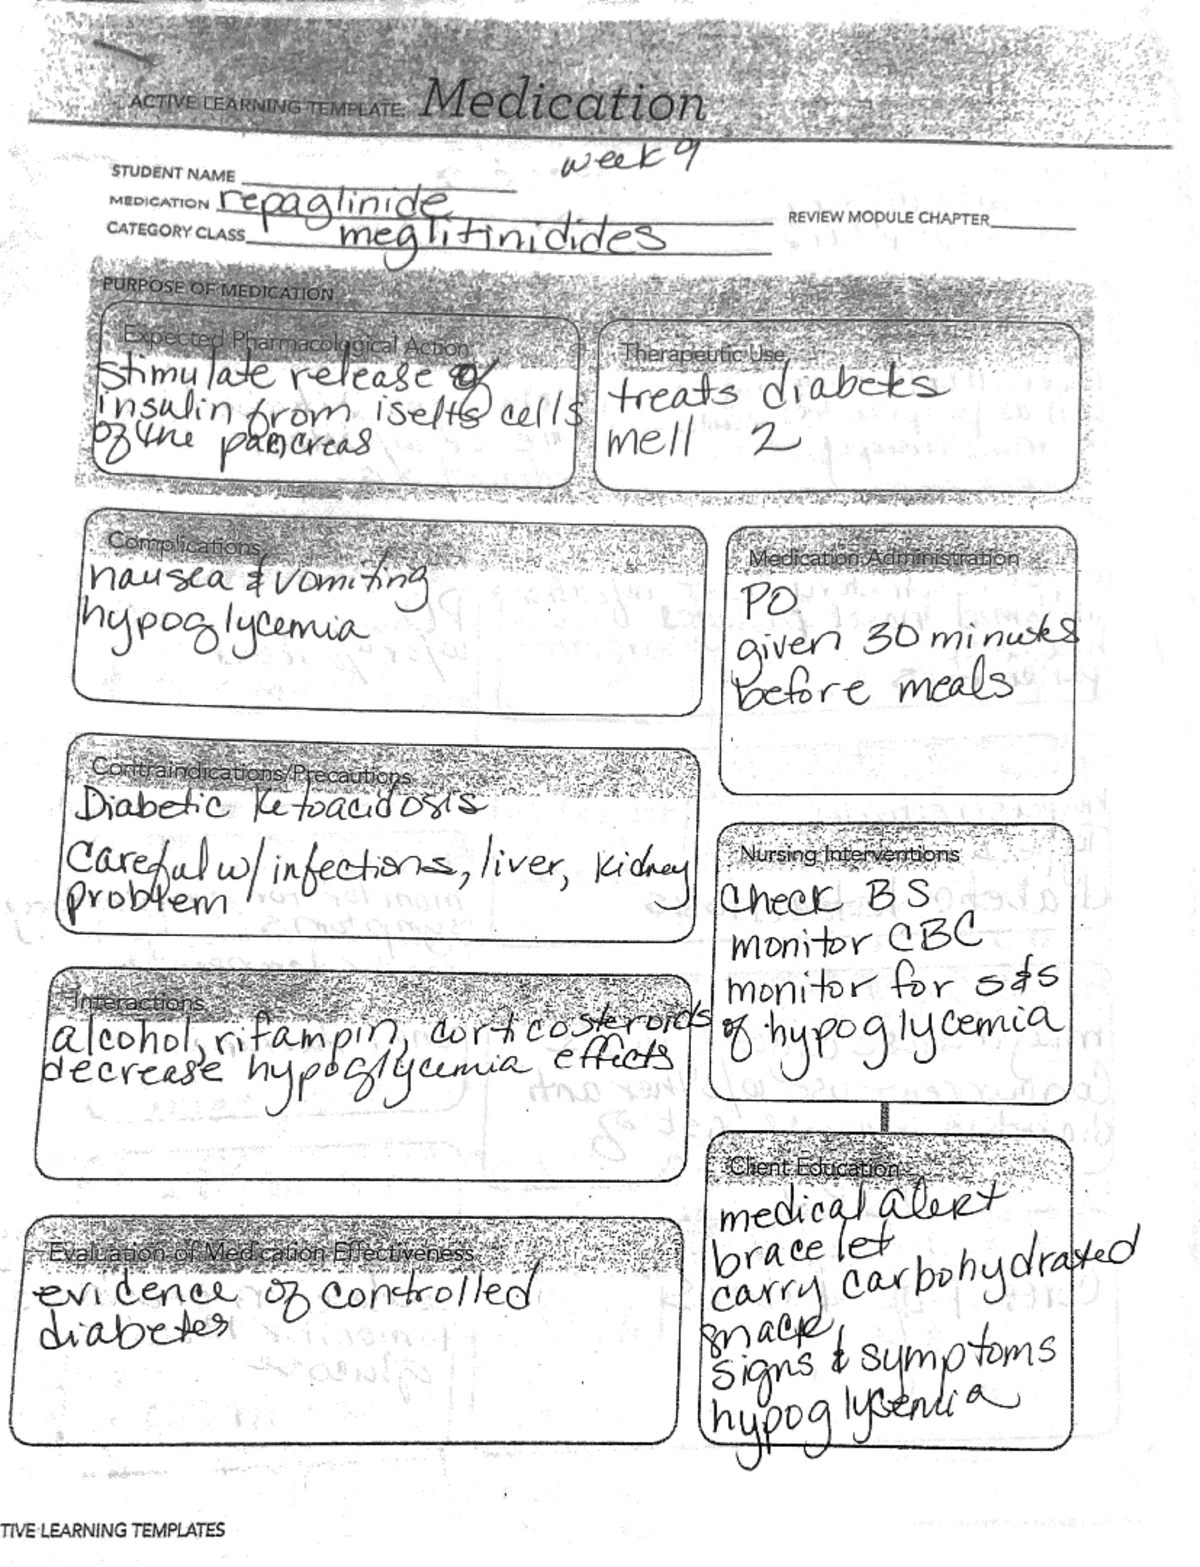 ACTIVE LEARNING TEMPLATE: Medication
week 9
STUDENT NAME
MEDICATION repaglinide
REVIEW MODULE CHAPTER
CATEGORY CLASS meglitinidides
PURPOSE OF MEDICATION
Expected Pharmacological Action
stimulate release of
insulin from iselts cells
of the pancreas
Therapeutic Use
treats diabetes
mell 2
Complications
nausea & vomiting
hypoglycemia
Medication Administration
PO
given 30 minutes
before meals
Contraindications/Precautions
Diabetic Ketoacidosis
Careful w/ infections, liver, kidney
problem
Nursing Interventions
Check BS
monitor CBC
monitor for s&s
of hypoglycemia
Interactions
alcohol, rifampin, corticosteroids
decrease hypoglycemia effects
Client Education
medical alert
bracelet
carry carbohydrated
snack
signs & symptoms
hypoglycemia
Evaluation of Medication Effectiveness
evidence of controlled
diabetes
TIVE LEARNING TEMPLATES